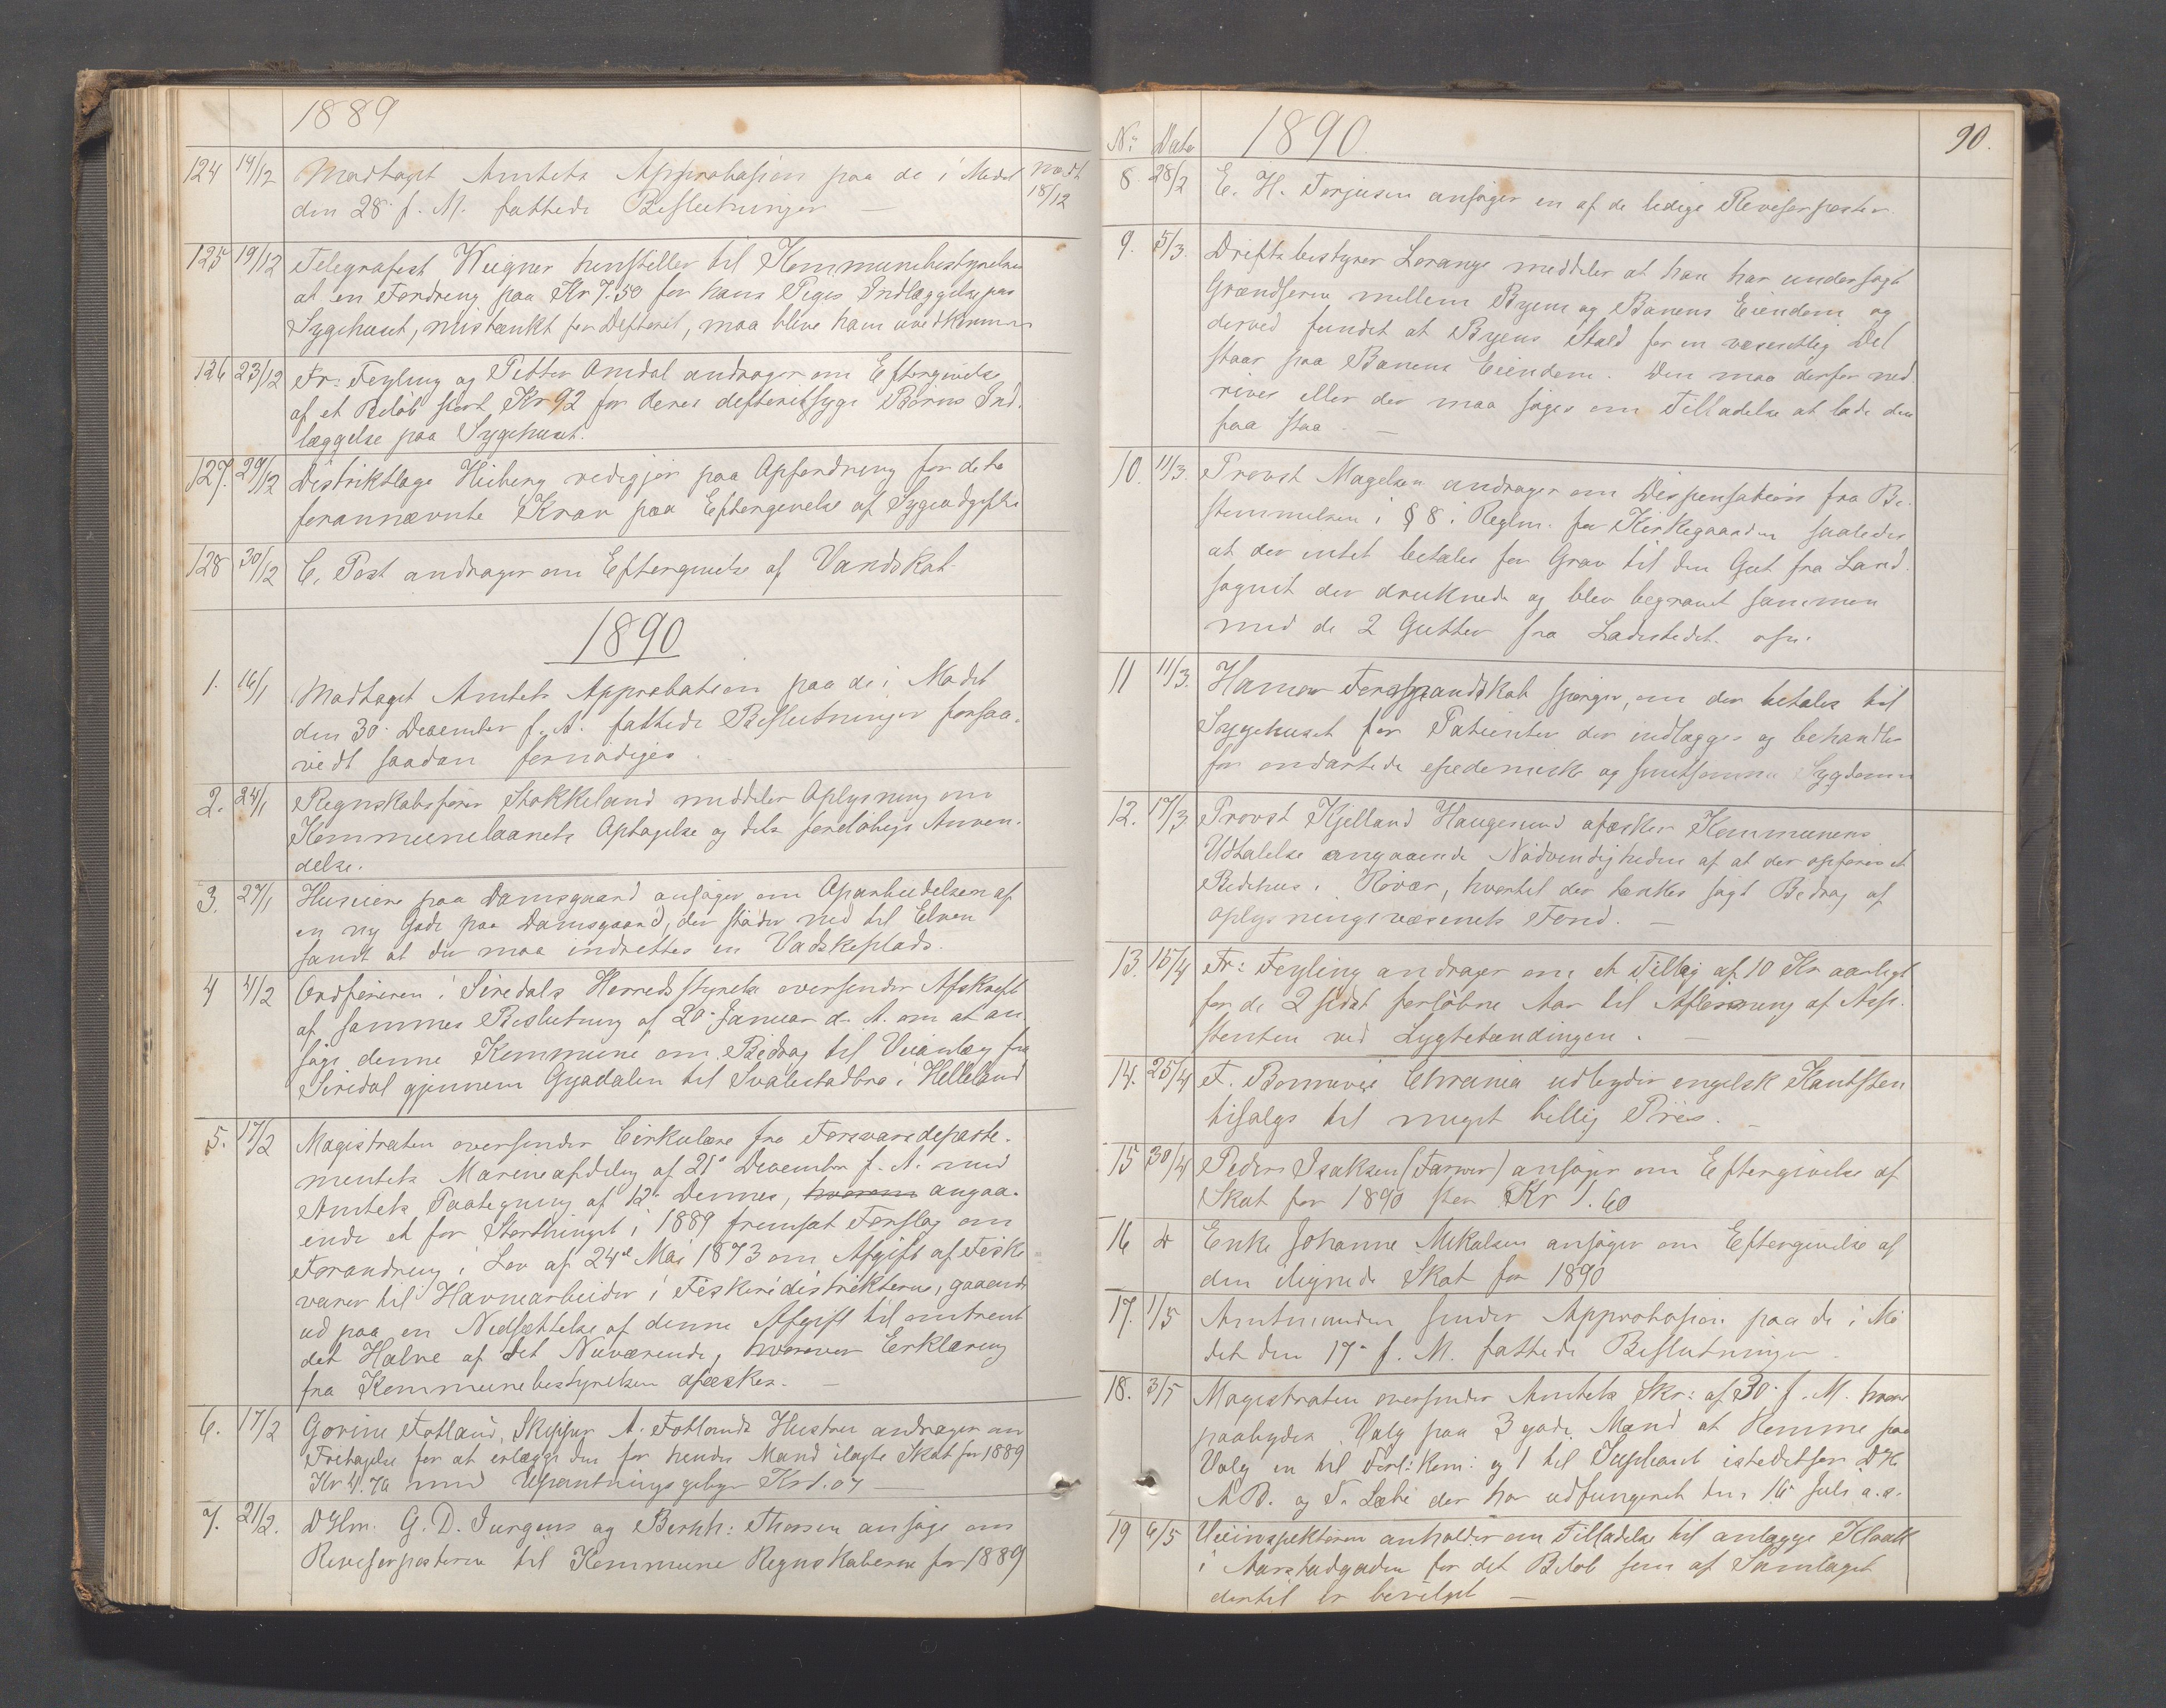 1889
124 14/12 Modtaget Amtets Approbasion paa de i Mødet modt
den 28 f. M. fattede Beslutninger — 18/12
125 19/12 Telegrafist Weigner henstiller til Kommunebestyrelsen
at en Fordring paa Kr 7.50 for hans Piges Indlæggelse paa
Sygehuset, mistænkt for Defterit, maa blive ham uvedkommen
126 23/12 Fr: Feyling og Petter Omdal andrager om Eftergivelse
af et Beløb stort Kr 92 for deres defteritsyge Børns Ind-
læggelse paa Sygehuset.
127. 29/12 Distriktlæge Hiberg redegjør paa Opfordring for dette
forannævnte Krav paa Eftergivelse af Sygeudgifter
128 30/12 C. Post andrager om Eftergivelse af Vandskat
1890
1. 16/1 Modtaget Amtets Approbation paa de i Mødet
den 30. December f. A. fattede Beslutninger forsaa-
vidt saadan fornødiges
2. 24/1 Regnskabsfører Stokkeland meddeler Oplysning om
Kommunelaanets Optagelse og dets foreløbige Anven-
delse.
3. 27/1 Huseiere paa Damsgaard ansøger om Oparbeidelsen af
en ny Gade paa Damsgaard, der støder ned til Elven
samt at der maa indrettes en Vadskeplads.
4 4/2 Ordføreren i Siredals Herredsstyrelse oversender Afskrift
af sammes Beslutning af 20. Januar d. A. om at an-
søge denne Kommune om Bedrag til Veianlæg fra
Siredal gjennem Gyadalen til Svalestadbro i Helleland
5. 17/2 Magistraten oversender Cirkulære fra Forsvarsdeparte-
mentets Marineafdeling af 21. December f. A. med
Amtets Paategning af 12. Dennes, hvorom angaa-
ende et for Storthinget i 1889 fremsat Forslag om
Forandring i Lov af 24de Mai 1873 om Afgift af Fiske
varer til Havnearbeider i Fiskeridistrikterne, gaaende
ud paa en Nedsættelse af denne Afgift til omtrent
det Halve af det Nuværende, hvorover Erklæring
fra Kommunebestyrelsen afæskes. —
6. 17/2 Gorine Fotland, Skipper A. Fotlands Hustru andrager om
Fritagelse for at erlægge den for hendes Mand ilagte Skat for 1889
Kr 4.76 med Udpantningsgebyr Kr 1.04 —
7. 21/2. DHrr. G. D. Jurgens og Bernh: Thorsen ansøge om
Revisorposterne til Kommune Regnskaberne for 1889
No: Dato 1890. 90.
8 28/2 E. H. Terjesen ansøger en af de ledige Revisorposter
9. 5/3 Driftsbestyrer Lorange meddeler at han har undersøgt
Grændserne mellem Byens og Banens Eiendom og
derved fundet at Byens Stald for en væsentlig Del
staar paa Banens Eiendom. Den maa derfor ned-
rives eller der maa søges om Tilladelse at lade den
faa staa. —
10. 11/3 Provst Magelsen andrager om Dispensation fra Be-
stemmelsen i § 8 i Reglm. for Kirkegaarden saaledes
at der intet betales for Grav til den Gut fra Land-
sognet der druknede og blev begravet sammen
med de 2 Gutter fra Ladestedet.
11 11/3. Hamar Formandskab spørger, om der betales til
Sygehuset for Patienter der indlægges og behandles
for ondartede epedemisk og smitsomme Sygdomm
12. 17/3 Provst Kjelland Haugesund afæsker Kommunens
Udtalelse angaaende Nødvendigheden af at der opføres et
Bedehus i Røvær, hvortil der tænkes søgt Bedrag af
oplysningsvæsenets Fond. —
13. 15/4 Fr: Feyling andrager om et Tillæg af 10 Kr aarligt
for de 2 sidst forløbne Aar til Aflønning af Assi-
stenten ved Lygtetændingen. —
14. 25/4 F. Bonnevie Chrania udbyder engelsk Kantsten
tilsalgs til meget billig Priis. —
15 30/4 Peder Isaksen (Farver) ansøger om Eftergivelse af
Skat for 1890 stor Kr 1.60
16 d Enke Johanne Mikalsen ansøger om Eftergivelse af
den ilignede Skat for 1890
17. 1/5 Amtmanden sender Approbasion paa de i Mø
det den 17. f. M. fattede Beslutninger
18. 3/5 Magistraten oversender Amtets Skr: af 30. f. M. hvor
paabydes Valg paa 3 gode Mænd at komme paa
Valg en til Forl: kom: og 1 til Suppleant istedetfor DHr
A. B. og T. Læhe der har udfungeret den 16 Juli a.a.
19 6/5 Veiinspektøren anholder om Tilladelse til anlægge Kloakk
i Aarstadgaden for det Beløb som af Samlaget
dertil er bevilget —